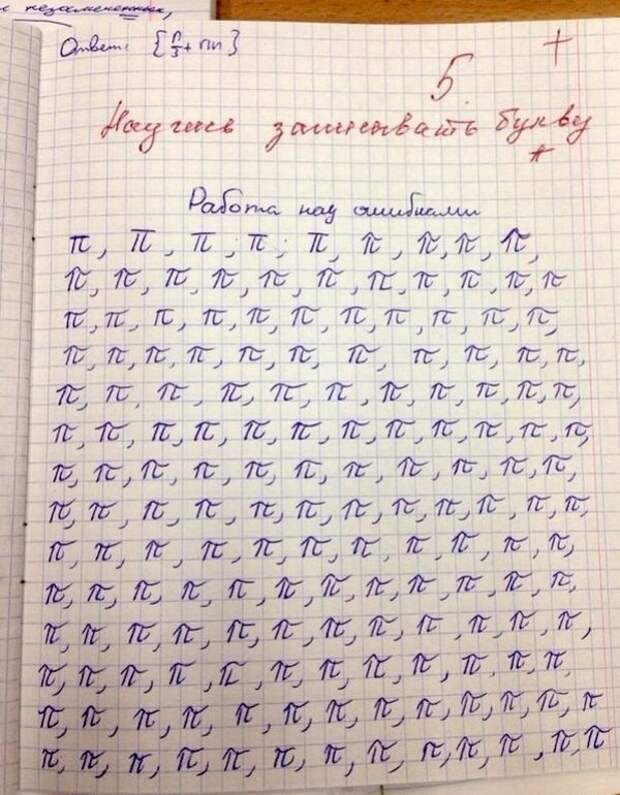 Ответ: {π/3 + πn}
5 +
Научись записывать букву
π
Работа над ошибками
π, π, π, π, π, π, π, π, π,
π, π, π, π, π, π, π, π, π, π, π
π, π, π, π, π, π, π, π, π, π, π,
π, π, π, π, π, π, π, π, π, π, π,
π, π, π, π, π, π, π, π, π, π, π,
π, π, π, π, π, π, π, π, π, π, π, π,
π, π, π, π, π, π, π, π, π, π, π,
π, π, π, π, π, π, π, π, π, π, π, π,
π, π, π, π, π, π, π, π, π, π, π,
π, π, π, π, π, π, π, π, π, π, π, π,
π, π, π, π, π, π, π, π, π, π, π, π,
π, π, π, π, π, π, π, π, π, π, π, π
π, π, π, π, π, π, π, π, π, π, π, π, π
π, π, π, π, π, π, π, π, π, π, π, π, π